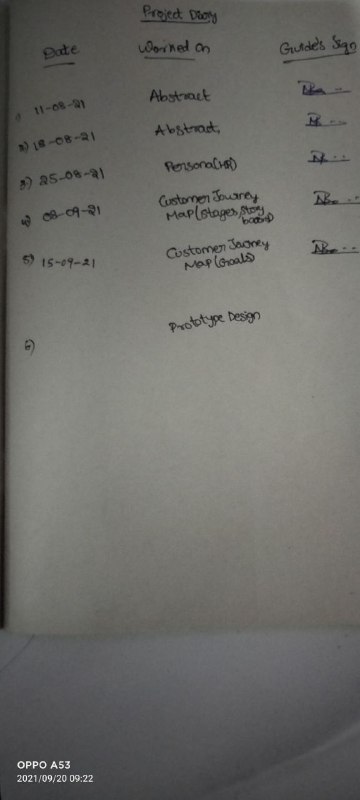 Project Diary
Date Worked on Guide's Sign
1) 11-08-21 Abstract
2) 18-08-21 Abstract,
3) 25-08-21 Persona(HR)
4) 08-09-21 Customer Journey
Map (stages, story
board)
5) 15-09-21 Customer Journey
Map (Goals)
6) Prototype Design
OPPO A53
2021/09/20 09:22